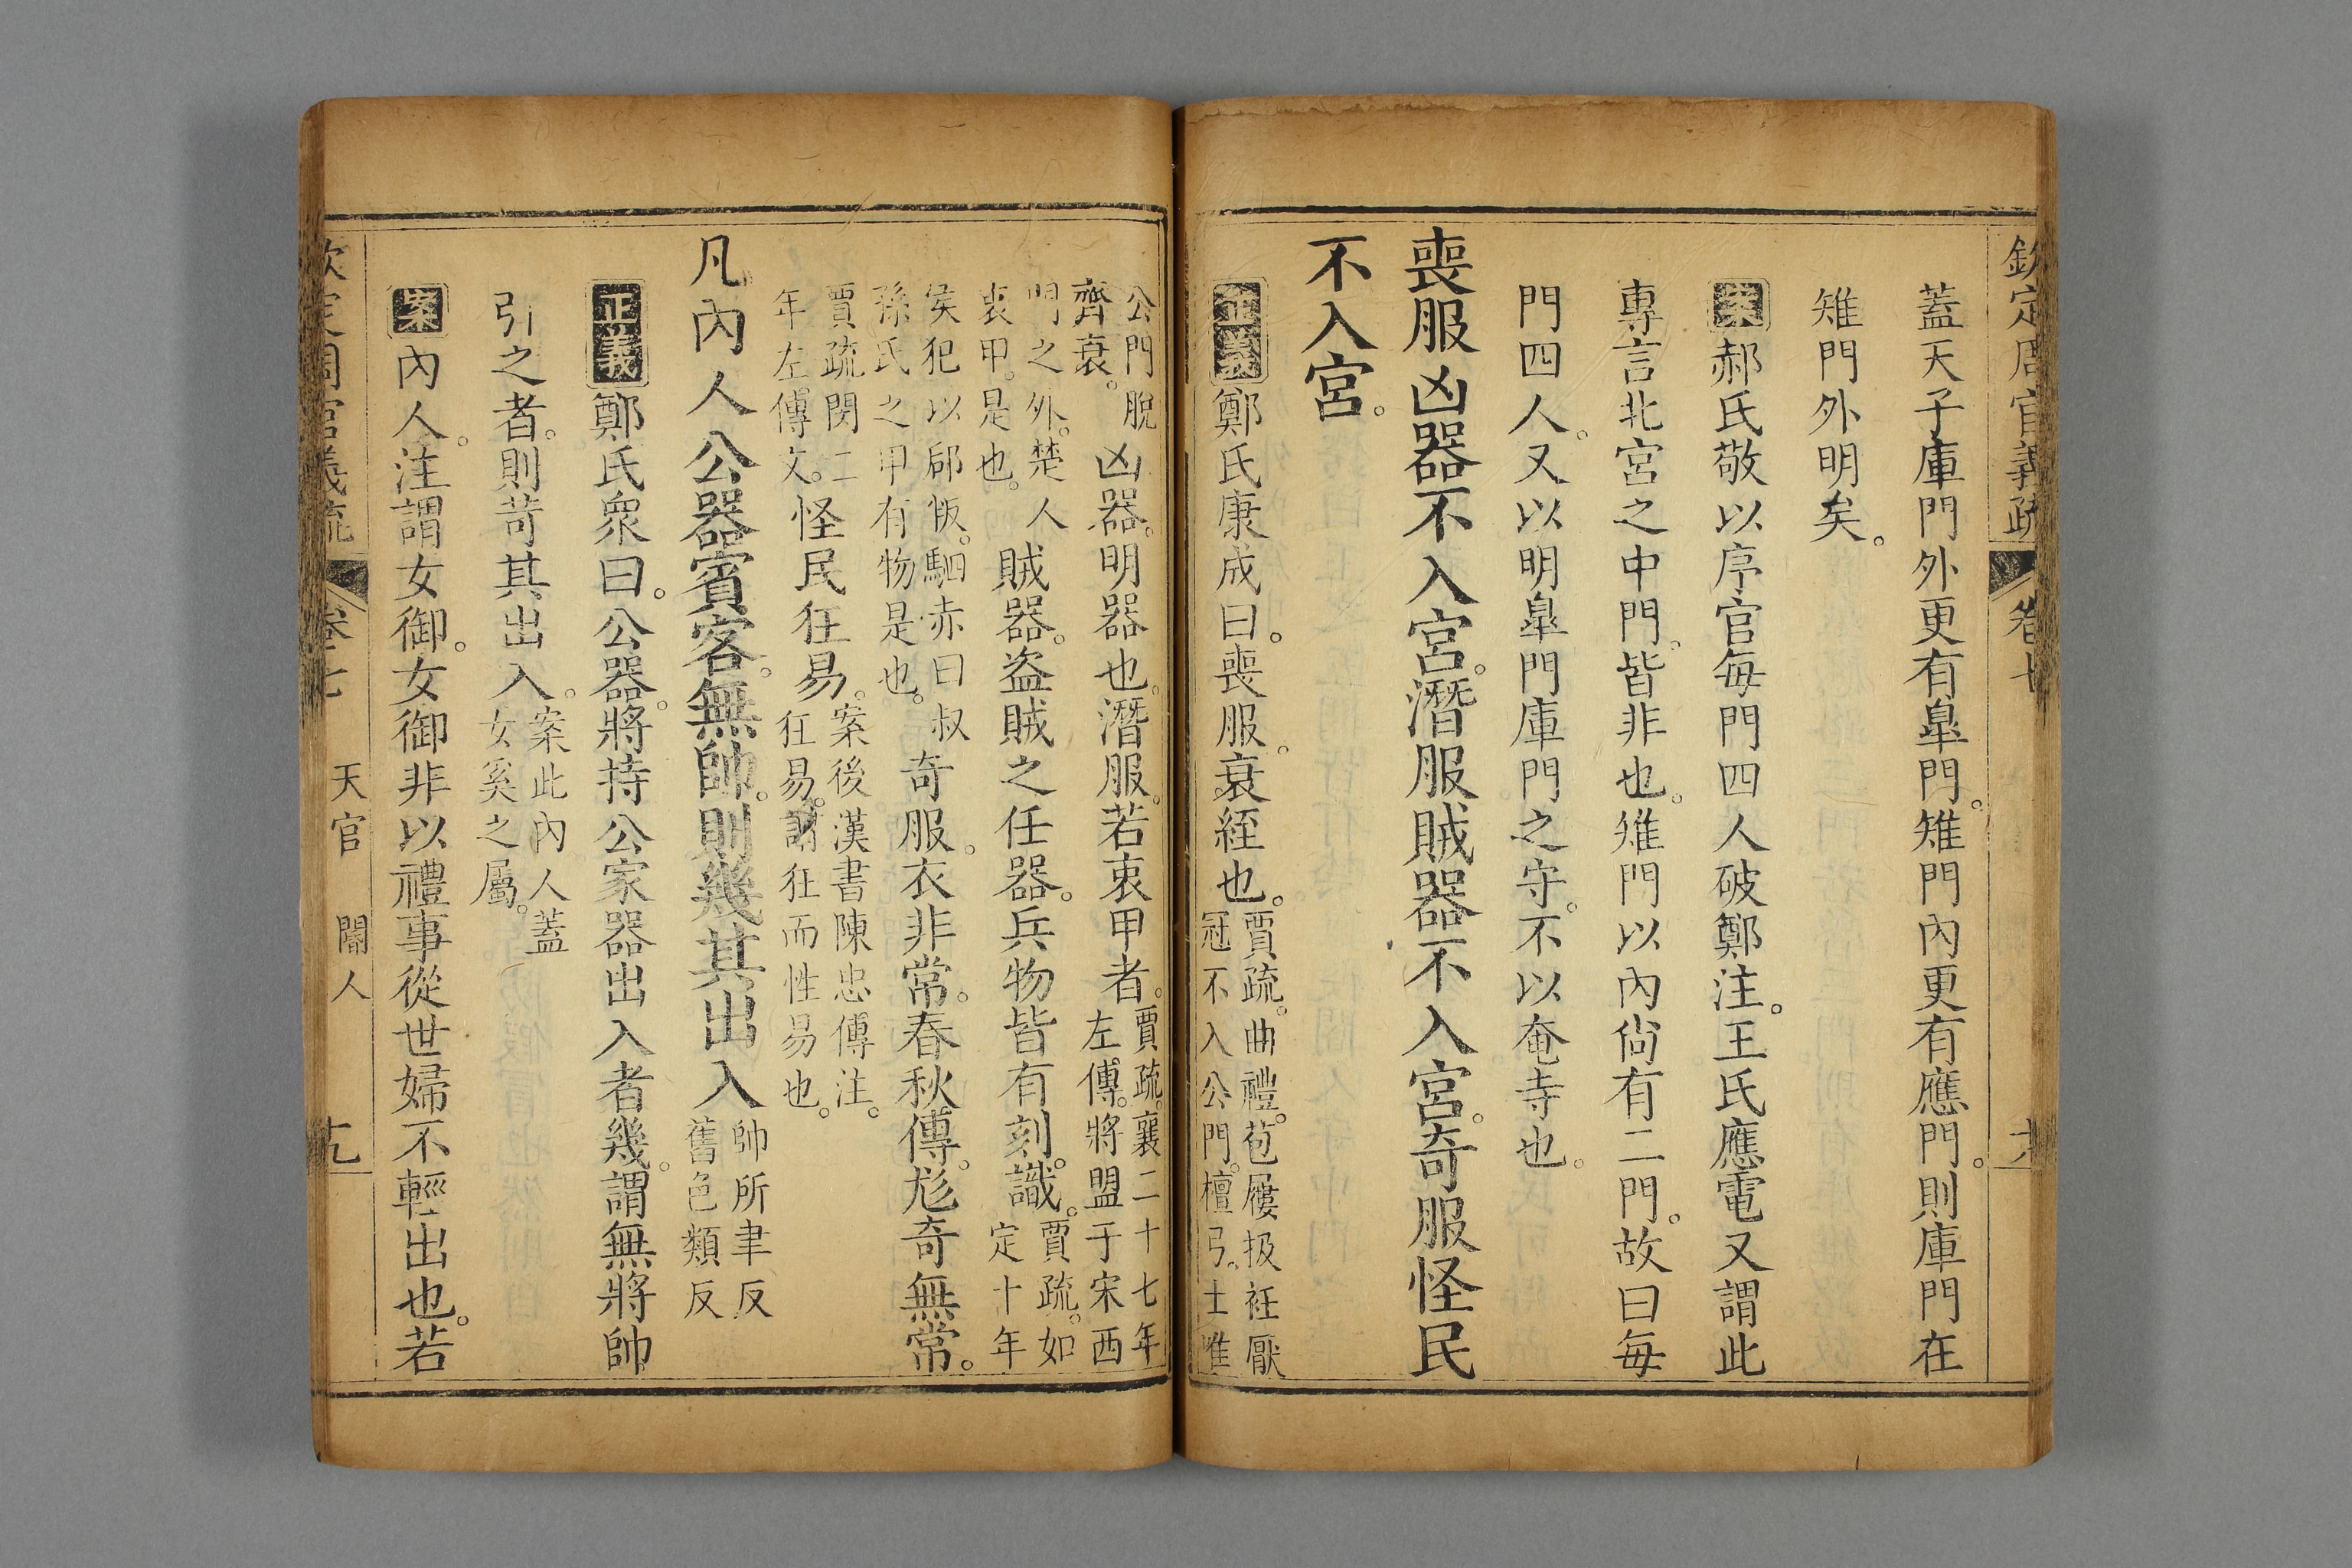 欽定周官義疏 卷七 十八
蓋天子庫門外更有臯門。雉門內更有應門。則庫門在
雉門外明矣。
案郝氏敬以序官每門四人破鄭注。王氏應電又謂此
專言北宮之中門。皆非也。雉門以內尙有二門。故曰每
門四人。又以明臯門庫門之守。不以奄寺也。
喪服凶器不入宮。潛服賊器不入宮。奇服怪民
不入宮。
正義鄭氏康成曰。喪服。衰絰也。賈疏。曲禮。苞屨扱衽厭
冠不入公門。檀弓。士唯
公門脫
齊衰。凶器。明器也。潛服。若衷甲者。賈疏。襄二十七年
左傳。將盟于宋西
門之外。楚人
衷甲。是也。賊器。盜賊之任器。兵物皆有刻識。賈疏。如
定十年
侯犯以郈叛。駟赤曰叔
孫氏之甲有物是也。奇服。衣非常。春秋傳。尨奇無常。
賈疏閔二
年左傳文。怪民狂易。案後漢書陳忠傳注。
狂易。謂狂而性易也。
凡內人公器賓客。無帥。則幾其出入帥所聿反
舊色類反
正義鄭氏衆曰。公器。將持公家器出入者幾。謂無將帥
引之者。則苛其出入。案此內人蓋
女奚之屬。
案內人。注謂女御。女御非以禮事從世婦不輕出也。若
欽定周官義疏 卷七 天官 閽人 十九